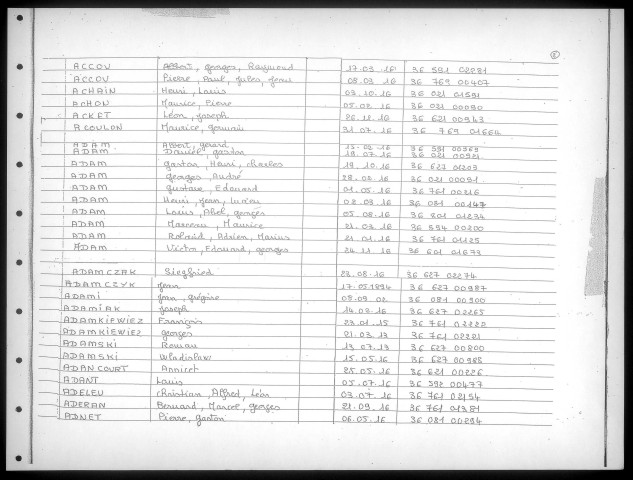 ②
ACCOU Albert, georges, Raymond 17.03.16 36 591 02281
ACCOU Pierre, Paul, Jules, Jean 08.03.16 36 769 00407
ACHAIN Henri, Louis 03.10.16 36 021 01591
ACHON Maurice, Pierre 05.02.16 36 021 00090
ACKET Léon, joseph 26.11.16 36 621 00943
ACOULON Maurice, Germain 31.07.16 36 769 01664
ADAM Albert, gérard, 13.02.16 36 591 00369
ADAM Daniel, gaston 19.07.16 36 021 00921
ADAM gaston, Henri, charles 19.10.16 36 627 01203
ADAM georges, André 28.03.16 36 021 00091
ADAM gustave, Edouard 01.05.16 36 761 00216
ADAM Henri, Jean, Lucien 02.09.16 36 081 00147
ADAM Louis, Abel, georges 05.08.16 36 801 01234
ADAM Marceau, Maurice 21.03.16 36 594 00200
ADAM Roland, Adrien, Marius 21.01.16 36 761 01125
ADAM Victor, Edouard, georges 24.11.16 36 601 01673
ADAMCZAK Siegfried 22.08.16 36 627 02274
ADAMCZYK Jean 17.05.1894 36 627 00987
ADAMI Jean, grégoire 09.09.02 36 081 00900
ADAMIAK joseph 14.07.16 36 627 02265
ADAMKIEWIEZ François 27.01.15 36 761 02222
ADAMKIEWIEZ georges 21.03.13 36 761 02221
ADAMSKI Roman 13.07.13 36 627 00800
ADAMSKI Wladislaw 15.05.16 36 627 00988
ADANCOURT Annicet 25.05.16 36 621 00226
ADANT Louis 05.07.16 36 592 00477
ADELEU christian, Alfred, Léon 03.07.16 36 761 02154
ADERAN Bernard, Marcel, georges 21.09.16 36 761 01381
ADNET Pierre, gaston 06.05.16 36 081 00294